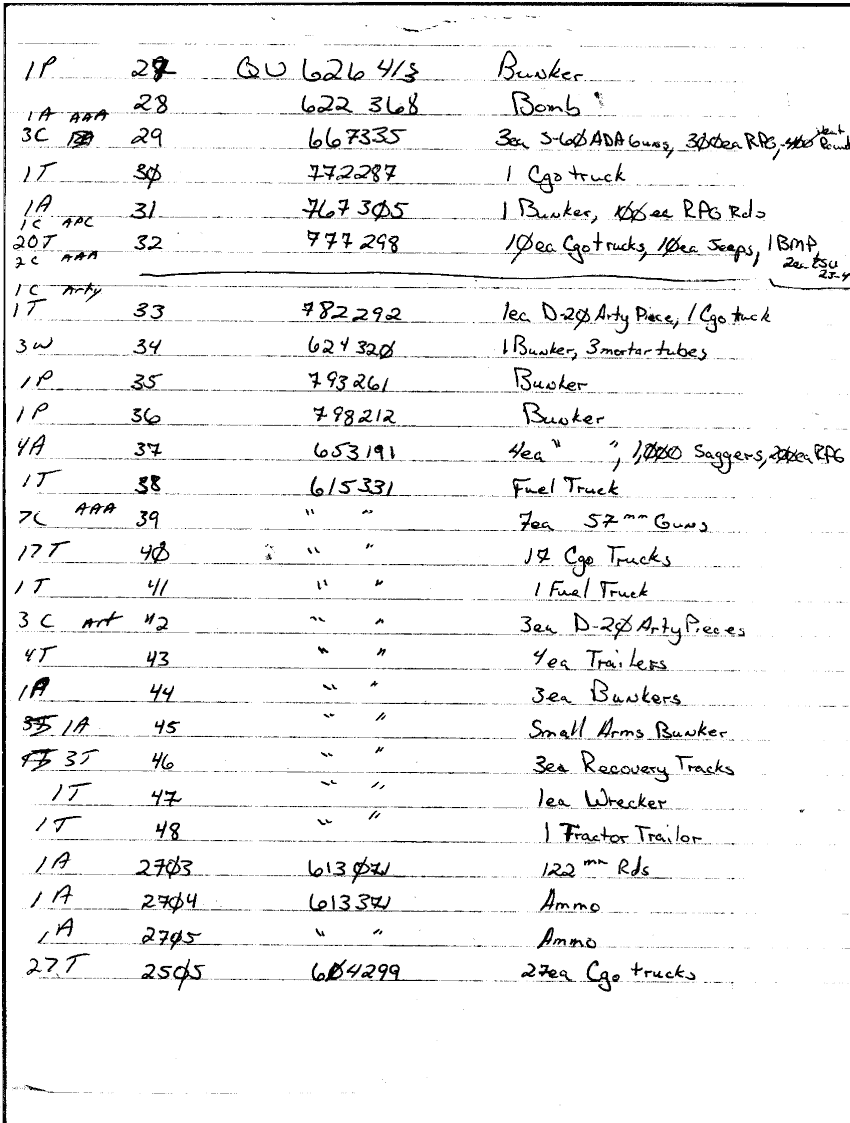 1P 27 QU 626 413 Bunker
28 622 368 Bomb
1A AAA
3C 29 667335 3ea S-60 ADA Guns, 300ea RPG, 400
1T 30 772287 1 Cgo truck
1A 31 767305 1 Bunker, 100 ea RPG Rds
1C APC
20T 32 777298 10ea Cgo trucks, 10ea Jeeps, 1 BMP,
2C AAA 2ea
1C Arty
1T 33 782292 1ea D-20 Arty Piece, 1 Cgo truck
3W 34 624320 1 Bunker, 3 mortar tubes
1P 35 793261 Bunker
1P 36 798212 Bunker
4A 37 653191 4ea " ", 1,000 Saggers, 200ea RPG
1T 38 615331 Fuel Truck
7C AAA 39 " " 7ea 57mm Guns
17T 40 " " 17 Cgo Trucks
1T 41 " " 1 Fuel Truck
3C Art 42 " " 3ea D-20 Arty Pieces
4T 43 " " 4ea Trailers
1A 44 " " 3ea Bunkers
1A 45 " " Small Arms Bunker
3T 46 " " 3ea Recovery Tracks
1T 47 " " 1ea Wrecker
1T 48 " " 1 Tractor Trailor
1A 2703 613071 122mm Rds
1A 2704 613371 Ammo
1A 2705 " " Ammo
27T 2505 604299 27ea Cgo trucks